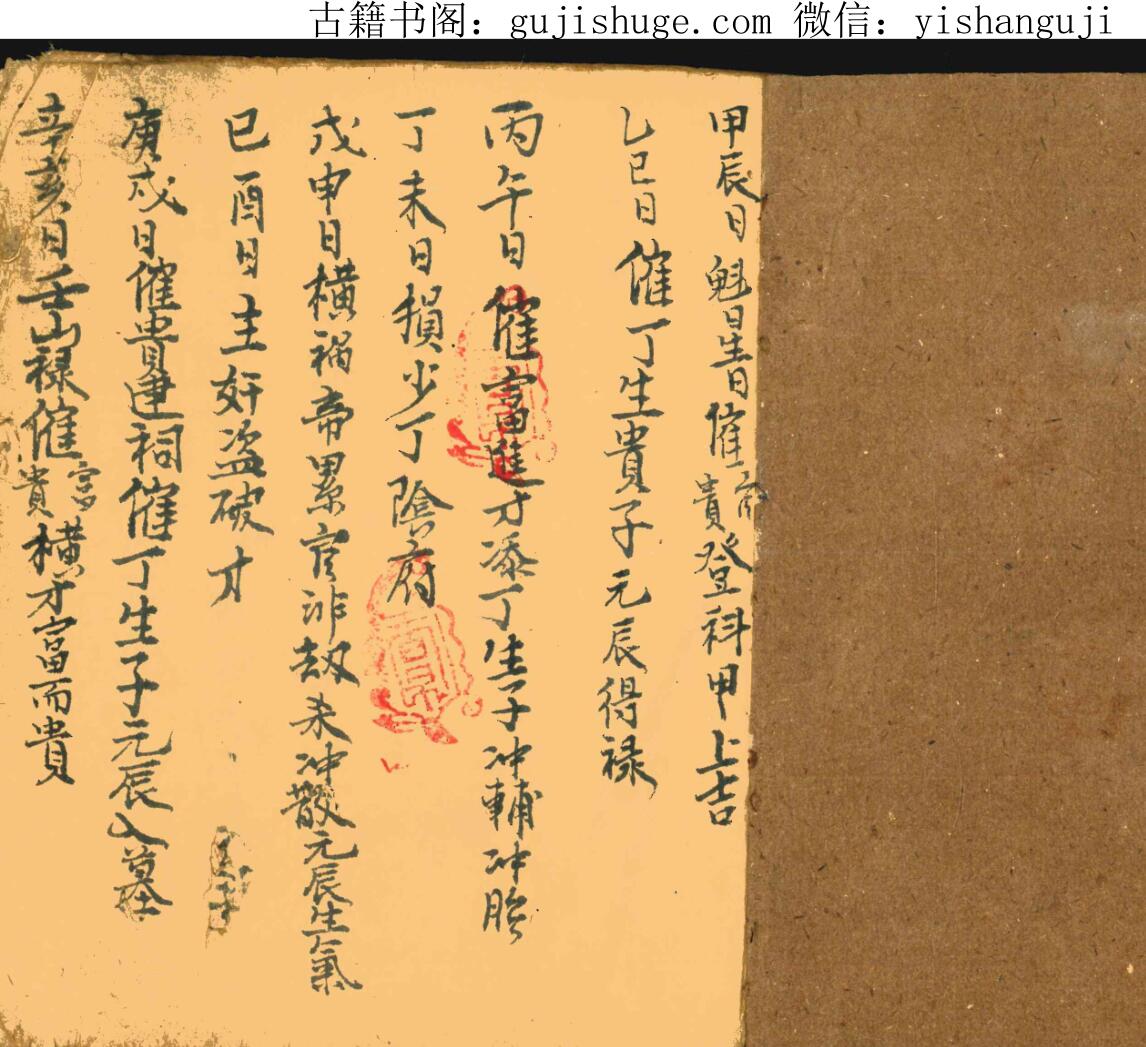 古籍书阁：gujishuge.com 微信：yishanguji
甲辰日魁星日催富貴登科甲上吉
乙巳日催丁生貴子元辰得禄
丙午日催富進才添丁生子冲輔冲胎
丁未日損少丁陰府
戊申日横禍帝累官非劫未冲散元辰生氣
己酉日主奸盗破才
庚戍日催貴建祠催丁生子元辰入墓
辛亥日壬山禄催富貴横才富而貴